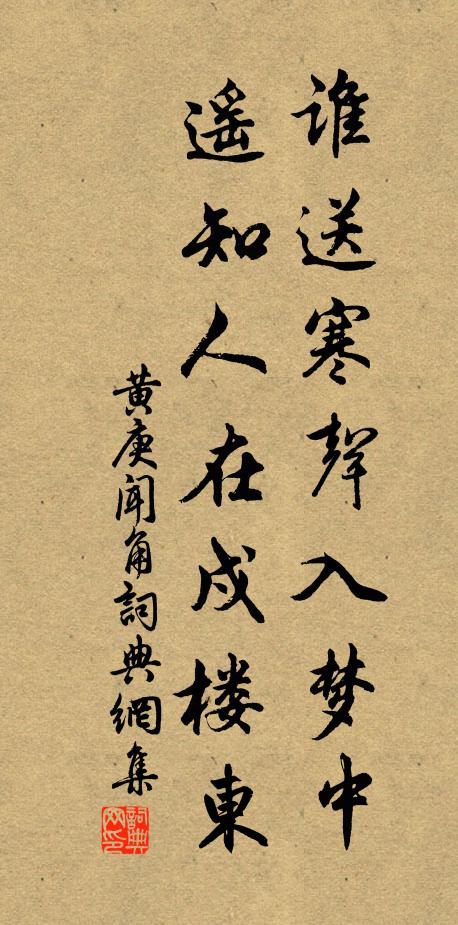 谁送寒聲入梦中
遥知人在戍楼東
黄庚闻角詞典網集
詞典网印